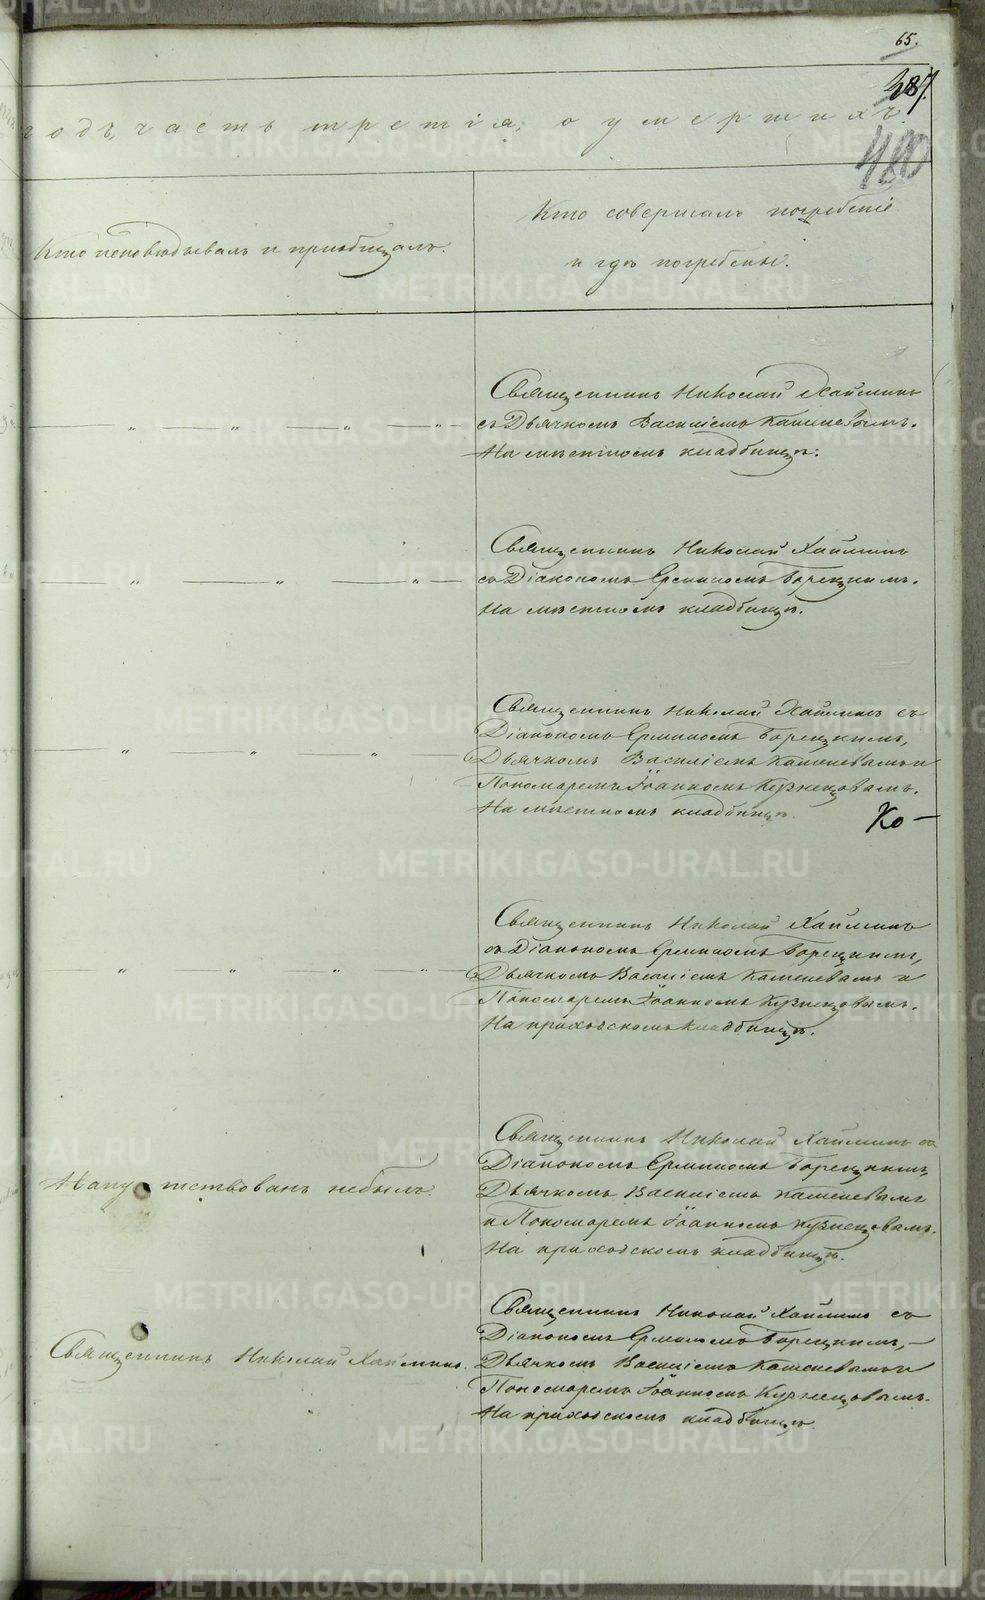 65.
387.
480
годъ, часть третія, о умершихъ.
Кто исповѣдывалъ и пріобщалъ.
Кто совершалъ погребеніе
и гдѣ погребены.
Священникъ Николай Хайминъ
съ Дьячкомъ Василіемъ Каменевымъ.
На мѣстномъ кладбищѣ.
Священникъ Николай Хайминъ
съ Діакономъ Ермиломъ Борецкимъ.
На мѣстномъ кладбищѣ.
Священникъ Николай Хайминъ съ
Діакономъ Ермиломъ Борецкимъ,
Дьячкомъ Василіемъ Каменевымъ и
Пономаремъ Іоанномъ Кузнецовымъ.
На мѣстномъ кладбищѣ.
Ко —
Священникъ Николай Хайминъ
съ Діакономъ Ермиломъ Борецкимъ,
Дьячкомъ Василіемъ Каменевымъ и
Пономаремъ Іоанномъ Кузнецовымъ.
На приходскомъ кладбищѣ.
Напутствованъ небылъ.
Священникъ Николай Хайминъ съ
Діакономъ Ермиломъ Борецкимъ,
Дьячкомъ Василіемъ Каменевымъ
и Пономаремъ Іоанномъ Кузнецовымъ.
На приходскомъ кладбищѣ.
Священникъ Николай Хайминъ.
Священникъ Николай Хайминъ съ
Діакономъ Ермиломъ Борецкимъ, —
Дьячкомъ Василіемъ Каменевымъ и
Пономаремъ Іоанномъ Кузнецовымъ.
На приходскомъ кладбищѣ.
METRIKI.GASO-URAL.RU